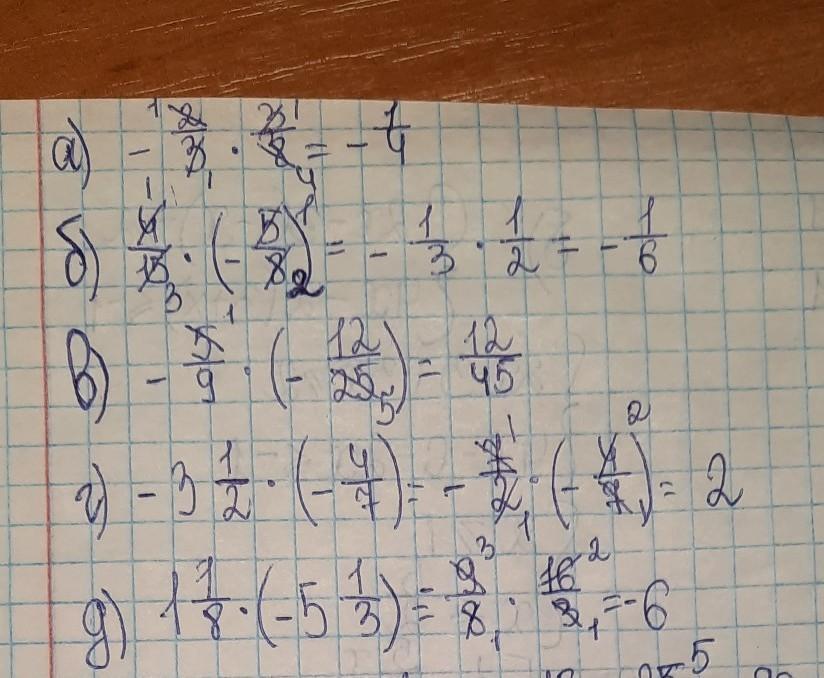 а) - 2/3 · 3/8 = - 1/4
б) 4/15 · (- 5/8) = - 1/3 · 1/2 = - 1/6
в) - 5/9 · (- 12/25) = 12/45
г) - 3 1/2 · (- 4/7) = - 7/2 · (- 4/7) = 2
д) 1 1/8 · (-5 1/3) = 9/8 · 16/3 = -6